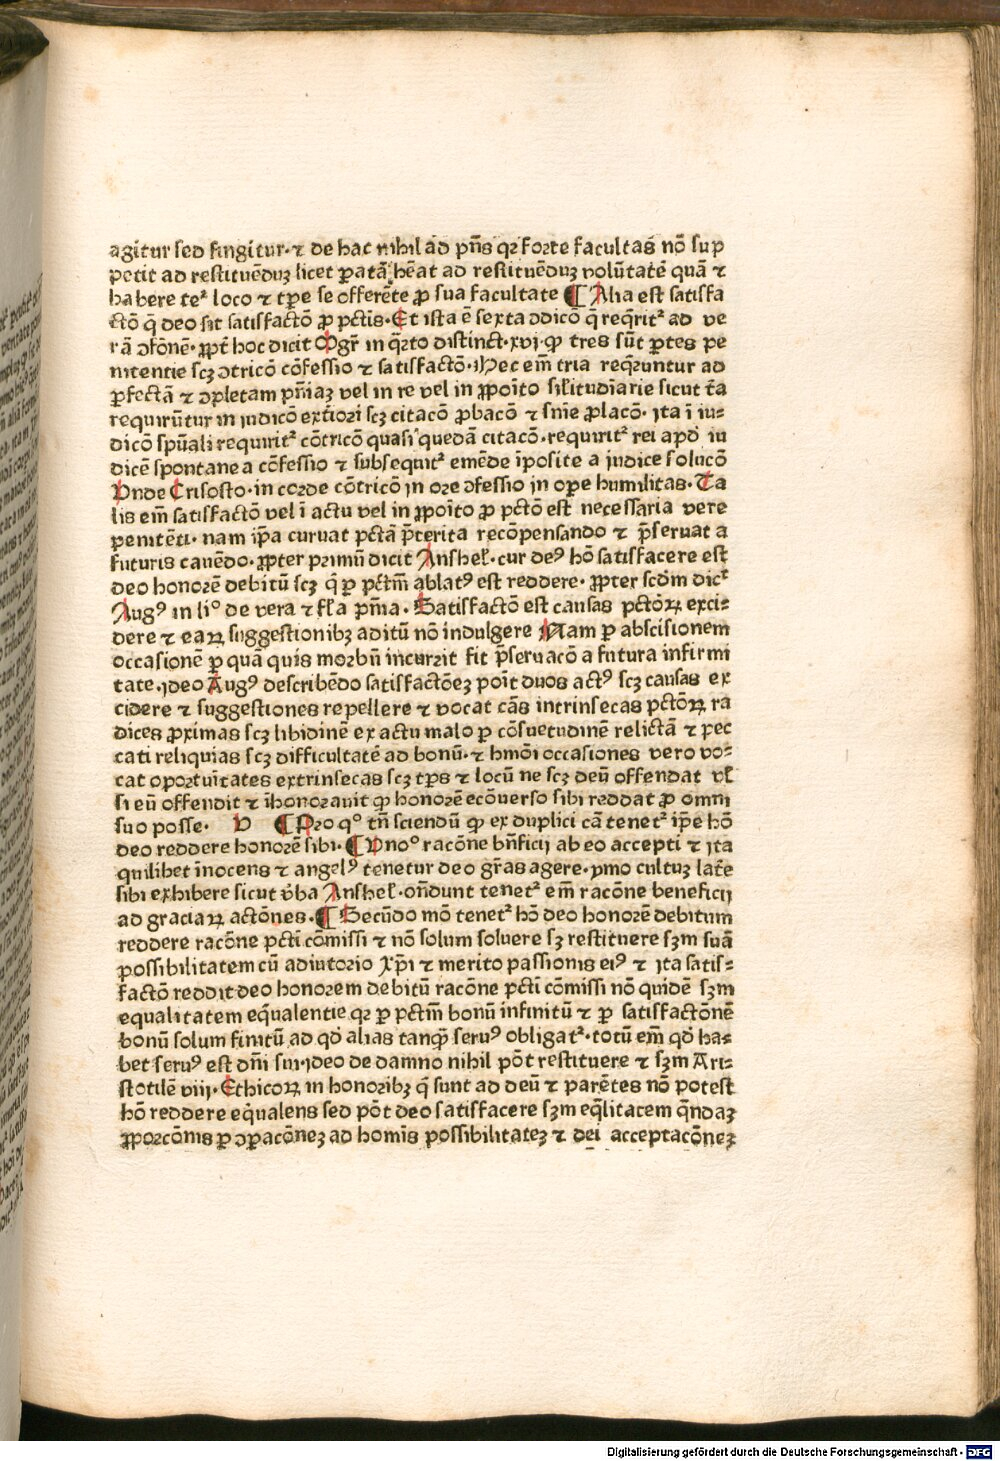 agitur sed fingitur· ⁊ de hac nihil ad pn̄s qꝛ forte facultas nō sup
petit ad restituēduꝫ licet ꝑatā hēat ad restituēduꝫ volūtatē quā ⁊
habere teᷣ loco ⁊ tꝑe se offerēte ꝓ sua facultate ¶ Alia est satisfa
ctō q̄ deo fit satisfactō ꝓ pctīs· Et ista ē sexta ↄdicō q̄ req̄ritᷣ ad ve
rā ↄtōnē· ꝓpt̄ hoc dicit Mgr̄ in q̄rto distinct· xvj· ꝙ tres sūt ꝑtes pe
nitentie scꝫ ↄtricō cōfessio ⁊ satisfactō· Nec em̄ tria reqͥruntur ad
ꝑfectā ⁊ ↄpletam pn̄iaꝫ vel in re vel in ꝓpoīto sil̄itudiarie sicut t̄a
requirūtur in iudicō ext̄iori scꝫ citacō ꝓbacō ⁊ sn̄ie ꝓlacō· ita ī iu⸗
dicō sp̄uali requiritᷣ cōtricō quasi quedā citacō· requiritᷣ rei apd̄ iu
dicē spontanea cōfessio ⁊ subsequitᷣ emēde īposite a iudice solucō
Vnde Crisosto· in corde cōtricō in ore ↄfessio in oꝑe humilitas· Ta
lis em̄ satisfactō vel ī actu vel in ꝓpoīto ꝓ pctō est necessaria vere
penitēti· nam ip̄a curuat pctā p̄terita recōpensando ⁊ p̄seruat a
futuris cauēdo· ꝓpter primū dicit Anshel̄· cur deꝰ hō satisfacere est
deo honorē debitū scꝫ q̄ ꝑ pctm̄ ablatꝰ est reddere· ꝓpter scd̄m dicᷣ
Augꝰ in li° de vera ⁊ fl̄a pn̄ia· Satisfactō est causas pctōꝝ exci⸗
dere ⁊ eaꝝ suggestionibꝫ aditū nō indulgere Nam ꝑ abscisionem
occasionē ꝑ quā quis morbū incurrit fit p̄seruacō a futura infirmi
tate· ideo Augꝰ describēdo satisfactōeꝫ poīt duos actꝰ scꝫ causas ex
cidere ⁊ suggestiones repellere ⁊ vocat cās intrinsecas pctōꝝ ra
dices ꝓximas scꝫ libidinē ex actu malo ꝑ cōsuetudinē relictā ⁊ pec
cati reliquias scꝫ difficultatē ad bonū· ⁊ hmōi occasiones vero vo⸗
cat oportuītates extrinsecas scꝫ tp̄s ⁊ locū ne scꝫ deū offendat vl̄
si eū offendit ⁊ īhonorauit ꝙ honorē ecōuerso sibi reddat ꝓ omni
suo posse· V ¶ Pro q° tn̄ sciendū ꝙ ex duplici cā tenetᷣ ip̄e hō
deo reddere honorē sibi· ¶ Vno° racōne bn̄ficij ab eo accepti ⁊ ita
quilibet īnocens ⁊ angelꝰ tenetur deo gr̄as agere· pͥmo cultuꝫ lat̄e
sibi exhibere sicut v̄ba Anshel̄· on̄dunt tenetᷣ em̄ racōne beneficij
ad graciaꝝ actōnes· ¶ Secūdo mō tenetᷣ hō deo honorē debitum
reddere racōne pcti cōmissi ⁊ nō solum soluere sꝫ restituere sꝫm suā
possibilitatem cū adiutorio xp̄i ⁊ merito passionis eiꝰ ⁊ ita satis⸗
factō reddit deo honorem debitū racōne pcti cōmissi nō quidē sꝫm
equalitatem eq̄ualentie qꝛ ꝑ pctm̄ bonū infinitū ⁊ ꝑ satisfactōnē
bonū solum finitū ad qd̄ alias tanqꝫ seruꝰ obligatᷣ· totū em̄ qd̄ ha⸗
bet seruꝰ est dn̄i sui· ideo de damno nihil pōt restituere ⁊ sꝫm Ari⸗
stotilē viij· Ethicoꝝ in honoribꝫ q̄ sunt ad deū ⁊ parētes nō potest
hō reddere eq̄ualens sed pōt deo satisfacere sꝫm eq̄litatem q̄ndaꝫ
ꝓporcōnis ꝑ ↄꝑacōneꝫ ad homīs possibilitateꝫ ⁊ dei acceptacōneꝫ
Digitalisierung gefördert durch die Deutsche Forschungsgemeinschaft - DFG